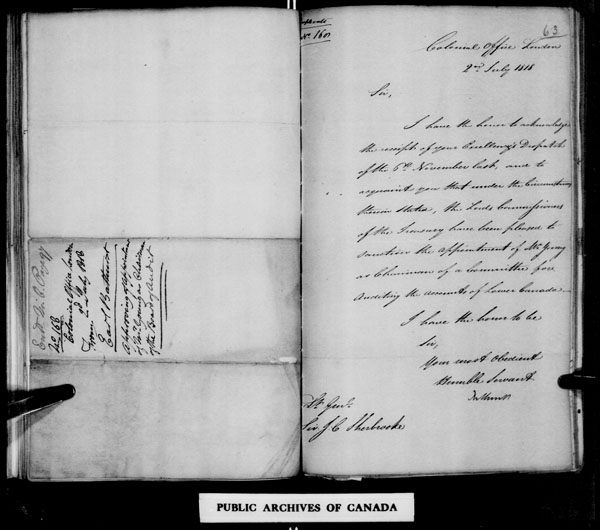 No. 168
Colonial Office London
2d July 1818
From
Earl Bathurst
Approving of the Appointment
of Mr Young as Chairman
of the Board of Audit
No. 160
63
Colonial Office London
2nd July 1818
Sir,
I have the honor to acknowledge
the receipt of your Excellency's Dispatch
of the 6th November last, and to
acquaint you that under the Circumstances
therein stated, the Lords Commissioners
of the Treasury have been pleased to
sanction the appointment of Mr Young
as Chairman of a Committee for
Auditing the accounts of Lower Canada
I have the honor to be
Sir,
Your most Obedient
Humble Servant
Bathurst
Lt Genl.
Sir J C Sherbrooke
PUBLIC ARCHIVES OF CANADA